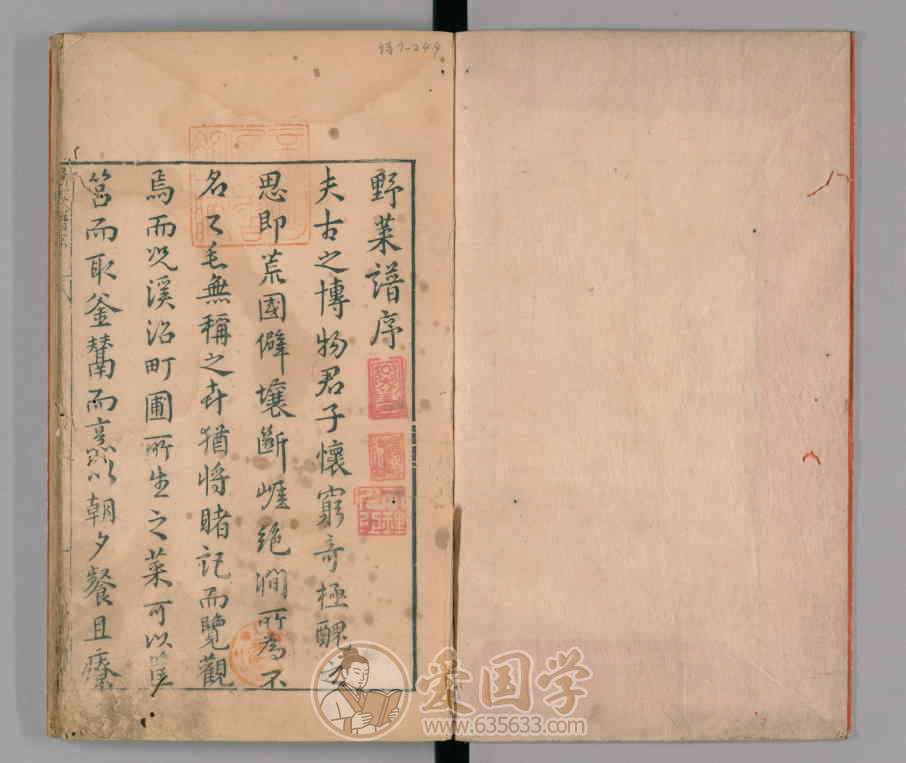 野菜譜序
夫古之博物君子懷窮奇極醜之
思即荒國僻壤斷崕絶澗所為不
名之毛無稱之卉猶將睹記而覽觀
焉而況溪沼町圃所生之菜可以筐
筥而取釜鬵而烹以朝夕餐且療
爱国学
www.635633.com